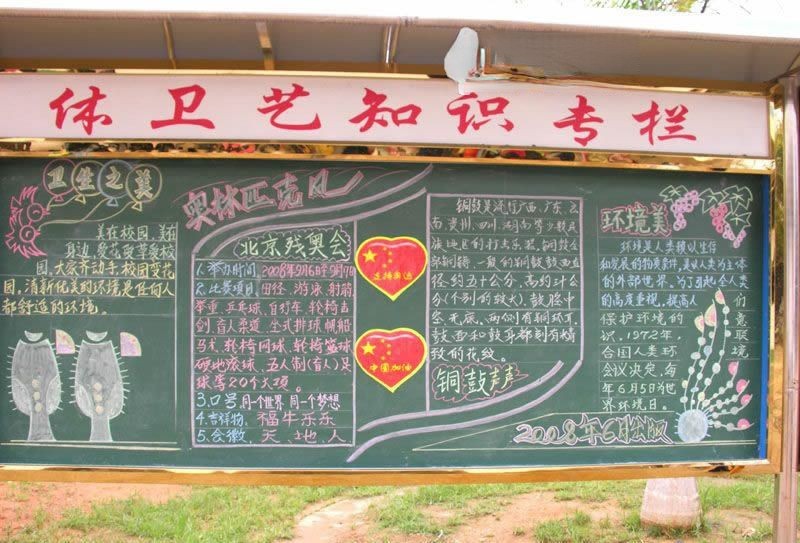 体卫艺知识专栏
卫生之美
美在校园,美在
身边,爱花爱草爱校
园,大家齐动手,校园变花
园,清新优美的环境是任何人
都舒适的环境。
奥林匹克风
北京残奥会
1.举办时间:2008年9月6日-9月17日
2.比赛项目:田径、游泳、射箭
举重、乒乓球、自行车、轮椅击
剑、盲人柔道、坐式排球、帆船
马术、轮椅网球、轮椅篮球
硬地滚球、五人制(盲人)足
球等20个大项。
3.口号:同一个世界 同一个梦想
4.吉祥物:福牛乐乐
5.会徽:天、地、人
迎接奥运
中国加油
铜鼓是流行广西、广东、云
南、贵州、四川、湖南等少数民
族地区的打击乐器,铜鼓全
部铜铸,一般的铜鼓鼓面直
径约五十公分,高约廿公
分(个别的较大),鼓腔中
空、无底、两侧有铜环耳,
鼓面和鼓身都刻有精
致的花纹。
铜鼓声声
环境美
环境是人类赖以生存
和发展的物质条件,是以人类为主体
的外部世界,为了引起全人类
的高度重视,提高人们
保护环境的意
识,1972年,联
合国人类环境
会议决定,每
年6月5日为世
界环境日。
2008年6月出版